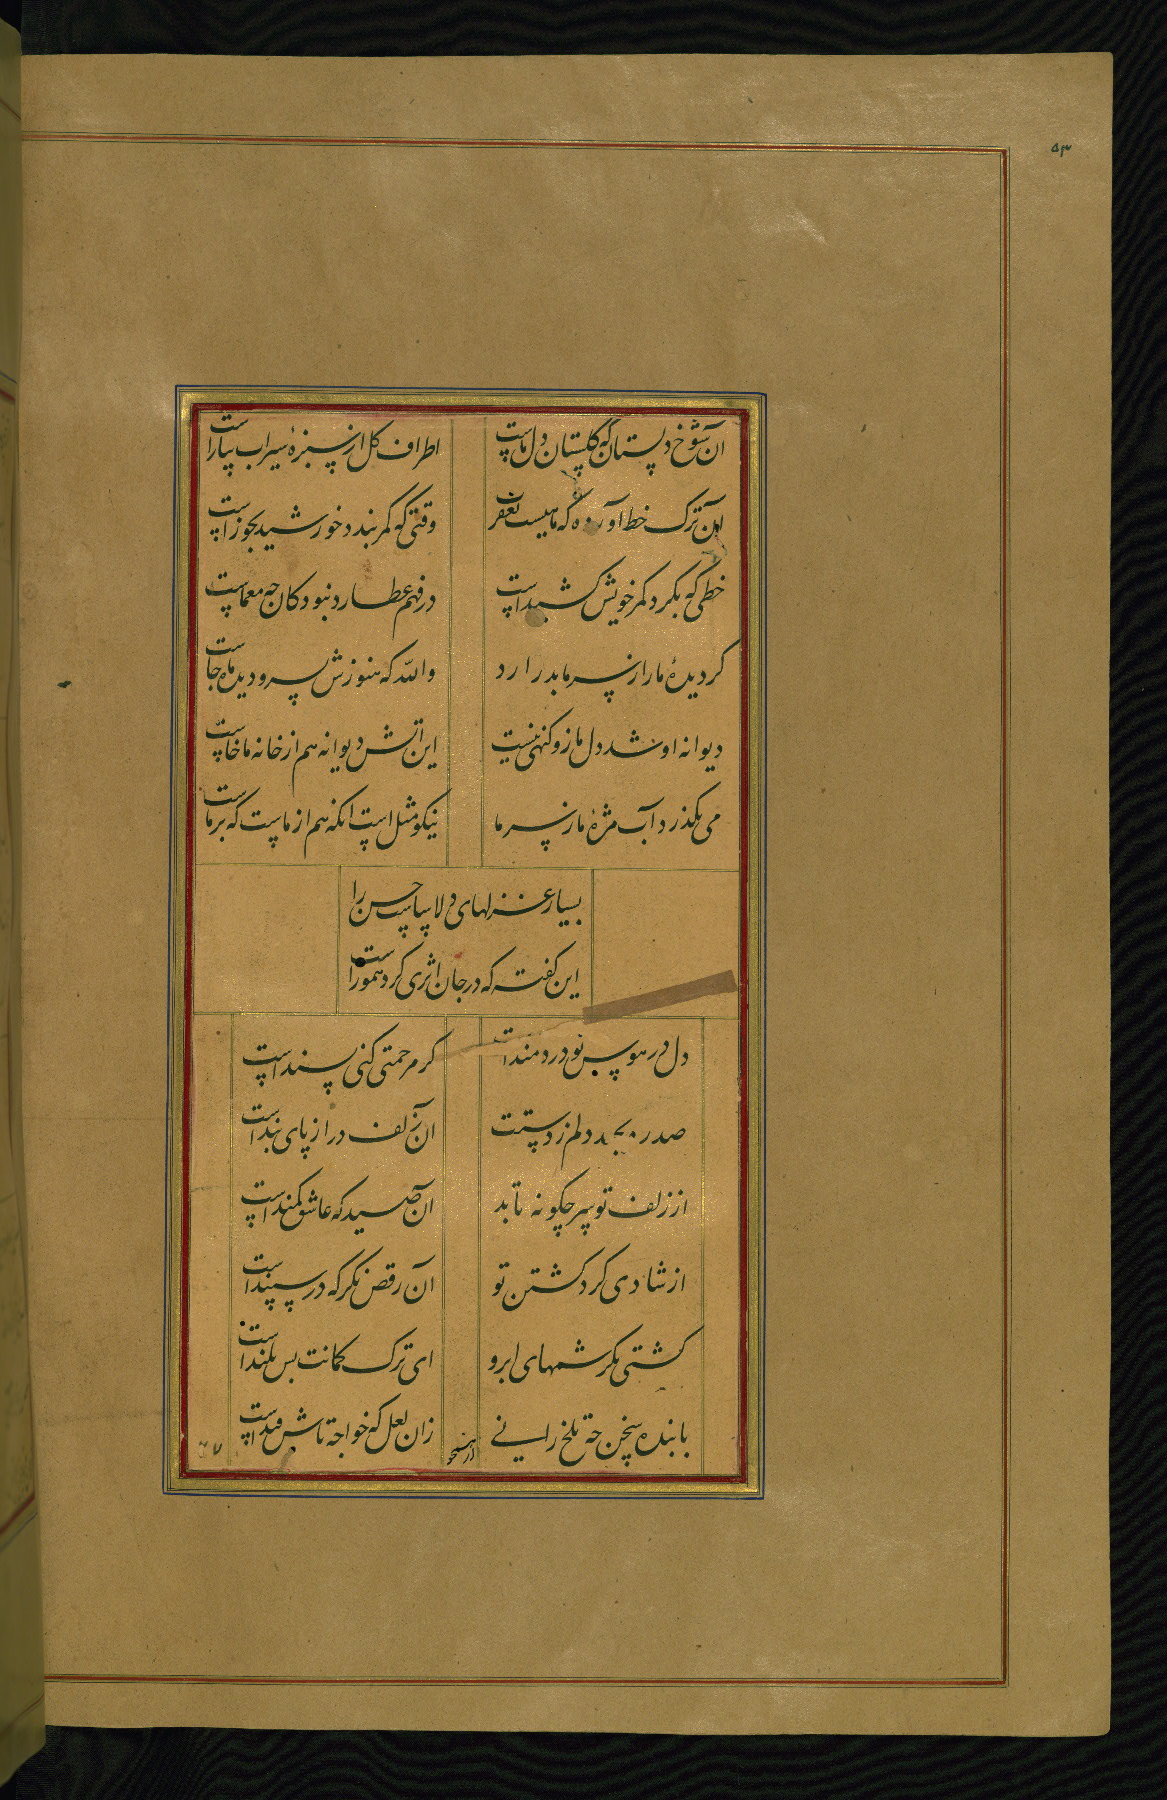 ۵۳
آن شوخ دلستان که گلستان دل ماست
اطراف گل از سبزهٔ سیراب بیاراست
آن ترک خط آورده که ماهیست
وقتی که کمر بندد خورشید بجوزاست
خطی که بگرد کمر خویش کشیداست
در فهم عطارد نبود کان چه معماست
گر دیدهٔ ما را ز سر ما بدر ارد
والله که هنوزش بسر و دیده ما جاست
دیوانه او شد دل ما زو گنهی نیست
این اتش دیوانه هم از خانه ما خاست
می بگذرد آب مژهٔ ما ز سر ما
نیکو مثل است انکه هم از ماست که بر ماست
بسیار غزلهای دلاساست حسن را
این گفته که در جان اثری کرد هموراست
دل در هوس تو دردمند است
گر مرحمتی کنی پسند است
صدره دلم ز دستت
ان زلف دراز پای بند است
از زلف تو سر چگونه تابد
ان صید که عاشق کمند است
از شادی گرد کشتن تو
آن رقص نگر که در سپند است
کشتی بکرشمهای ابرو
ای ترک کمانت بس بلند است
با بنده سخن چه تلخ رانی
زان لعل که خواجه تاش قند است